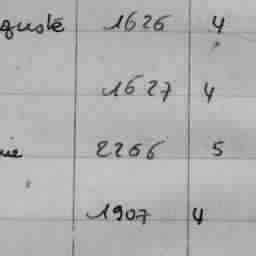 guste 1626 4
1627 4
nie 2266 5
1907 4